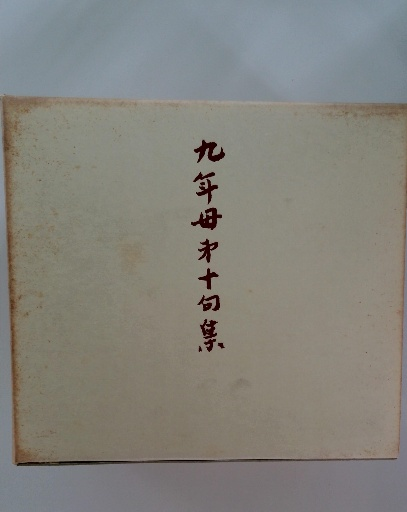 九年母第十句集